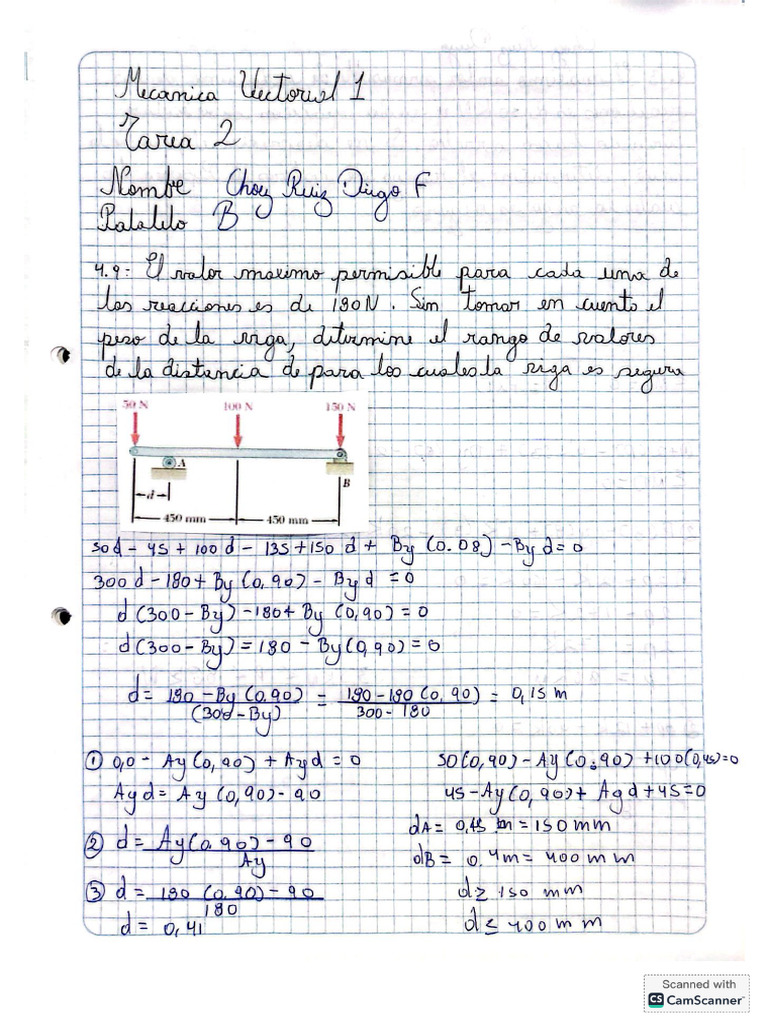 Mecanica Vectorial 1
Tarea 2
Nombre Choez Ruiz Diego F
Paralelo B
4.9: El valor maximo permisible para cada una de
las reacciones es de 180N. Sin tomar en cuenta el
peso de la viga, determine el rango de valores
de la distancia de para los cuales la viga es segura
50 N 100 N 150 N
A
B
d
450 mm 450 mm
50d - 45 + 100d - 135 + 150d + By (0.08) - By d = 0
300d - 180 + By (0,90) - By d = 0
d (300 - By) - 180 + By (0,90) = 0
d (300 - By) = 180 - By (0,90) = 0
d = 180 - By (0.90) / (300 - By) = 180 - 180 (0,90) / 300 - 180 = 0,15 m
① 0,0 - Ay (0,90) + Ay d = 0
Ay d = Ay (0,90) - 90
② d = Ay (0.90) - 90 / Ay
③ d = 180 (0.90) - 90 / 180
d = 0,41
50 (0,90) - Ay (0.90) + 100 (0,45) = 0
45 - Ay (0,90) + Ay d + 45 = 0
dA = 0,15 m = 150 mm
dB = 0.4m = 400 mm
d ≥ 150 mm
d ≤ 400 mm
Scanned with
CS CamScanner